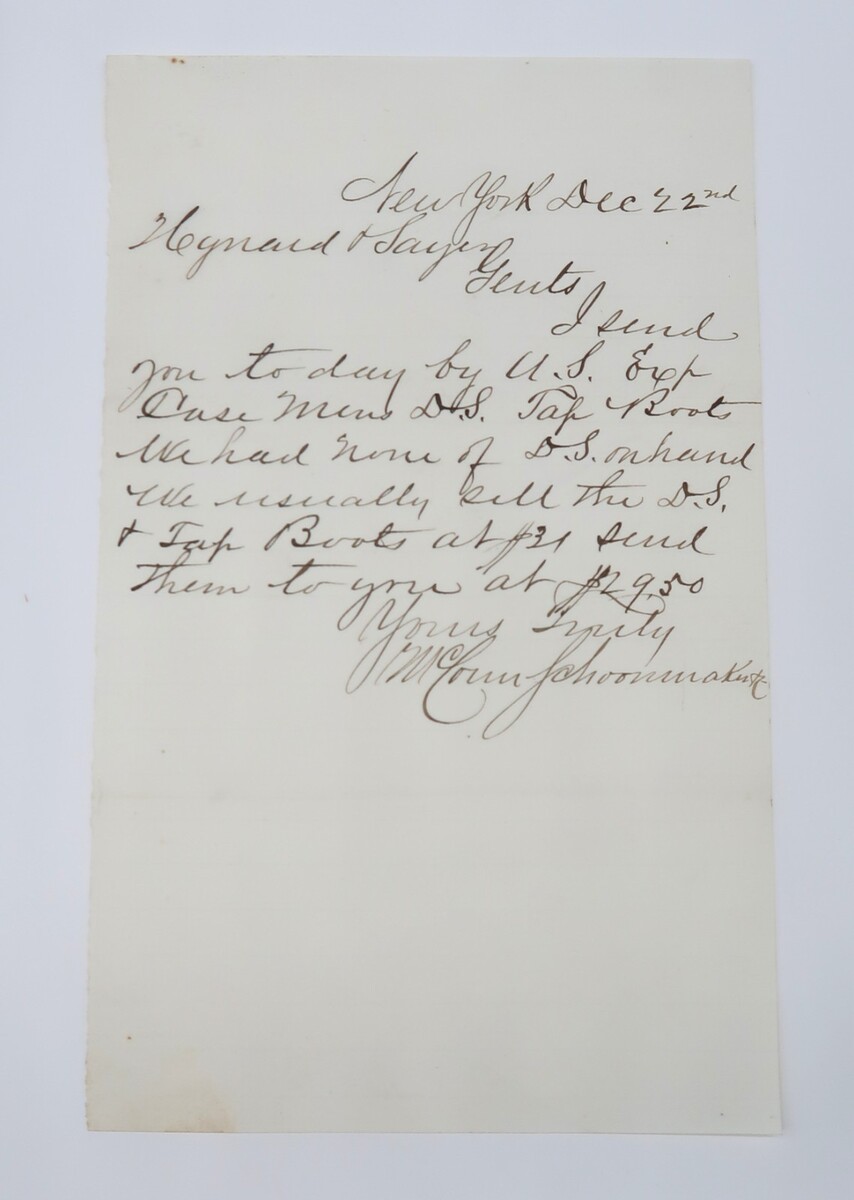 New York Dec 22nd
Hynard & Sayer
Gents
I send
you to day by U.S. Exp
Case Mens D.S. Tap Boots
We had none of D.S. on hand
We usually sell the D.S.
& Tap Boots at $31 send
them to you at $29.50
Yours Truly
McConn Schoonmaker & Co